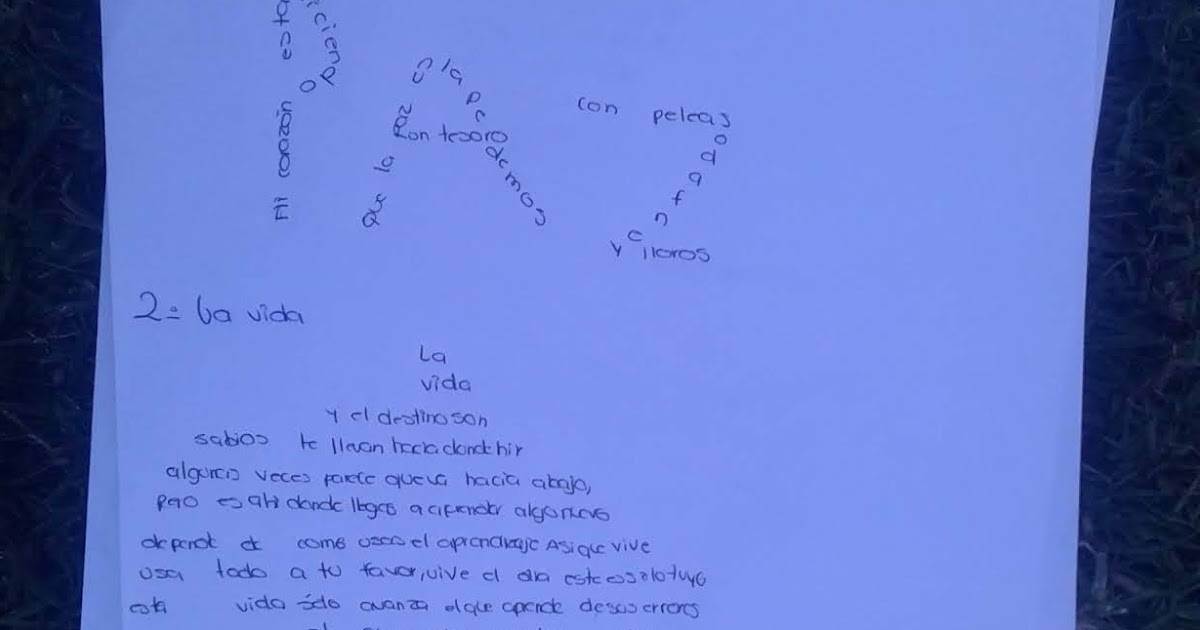 Mi corazón esta
iciend
o
Que la Paz es la pe
con tesoro
demos
con peleas
enfado
y lloros
2= La vida
La
vida
y el destino son
sabios te llevan hacia donde hir
algunas veces parece que va hacia abajo,
pero es ahi donde llegas a aprender algo nuevo
depende de como usas el aprendizaje Asi que vive
usa todo a tu favor, vive el dia este es solo tuyo
esta vida sólo avanza el que aprende de sus errores